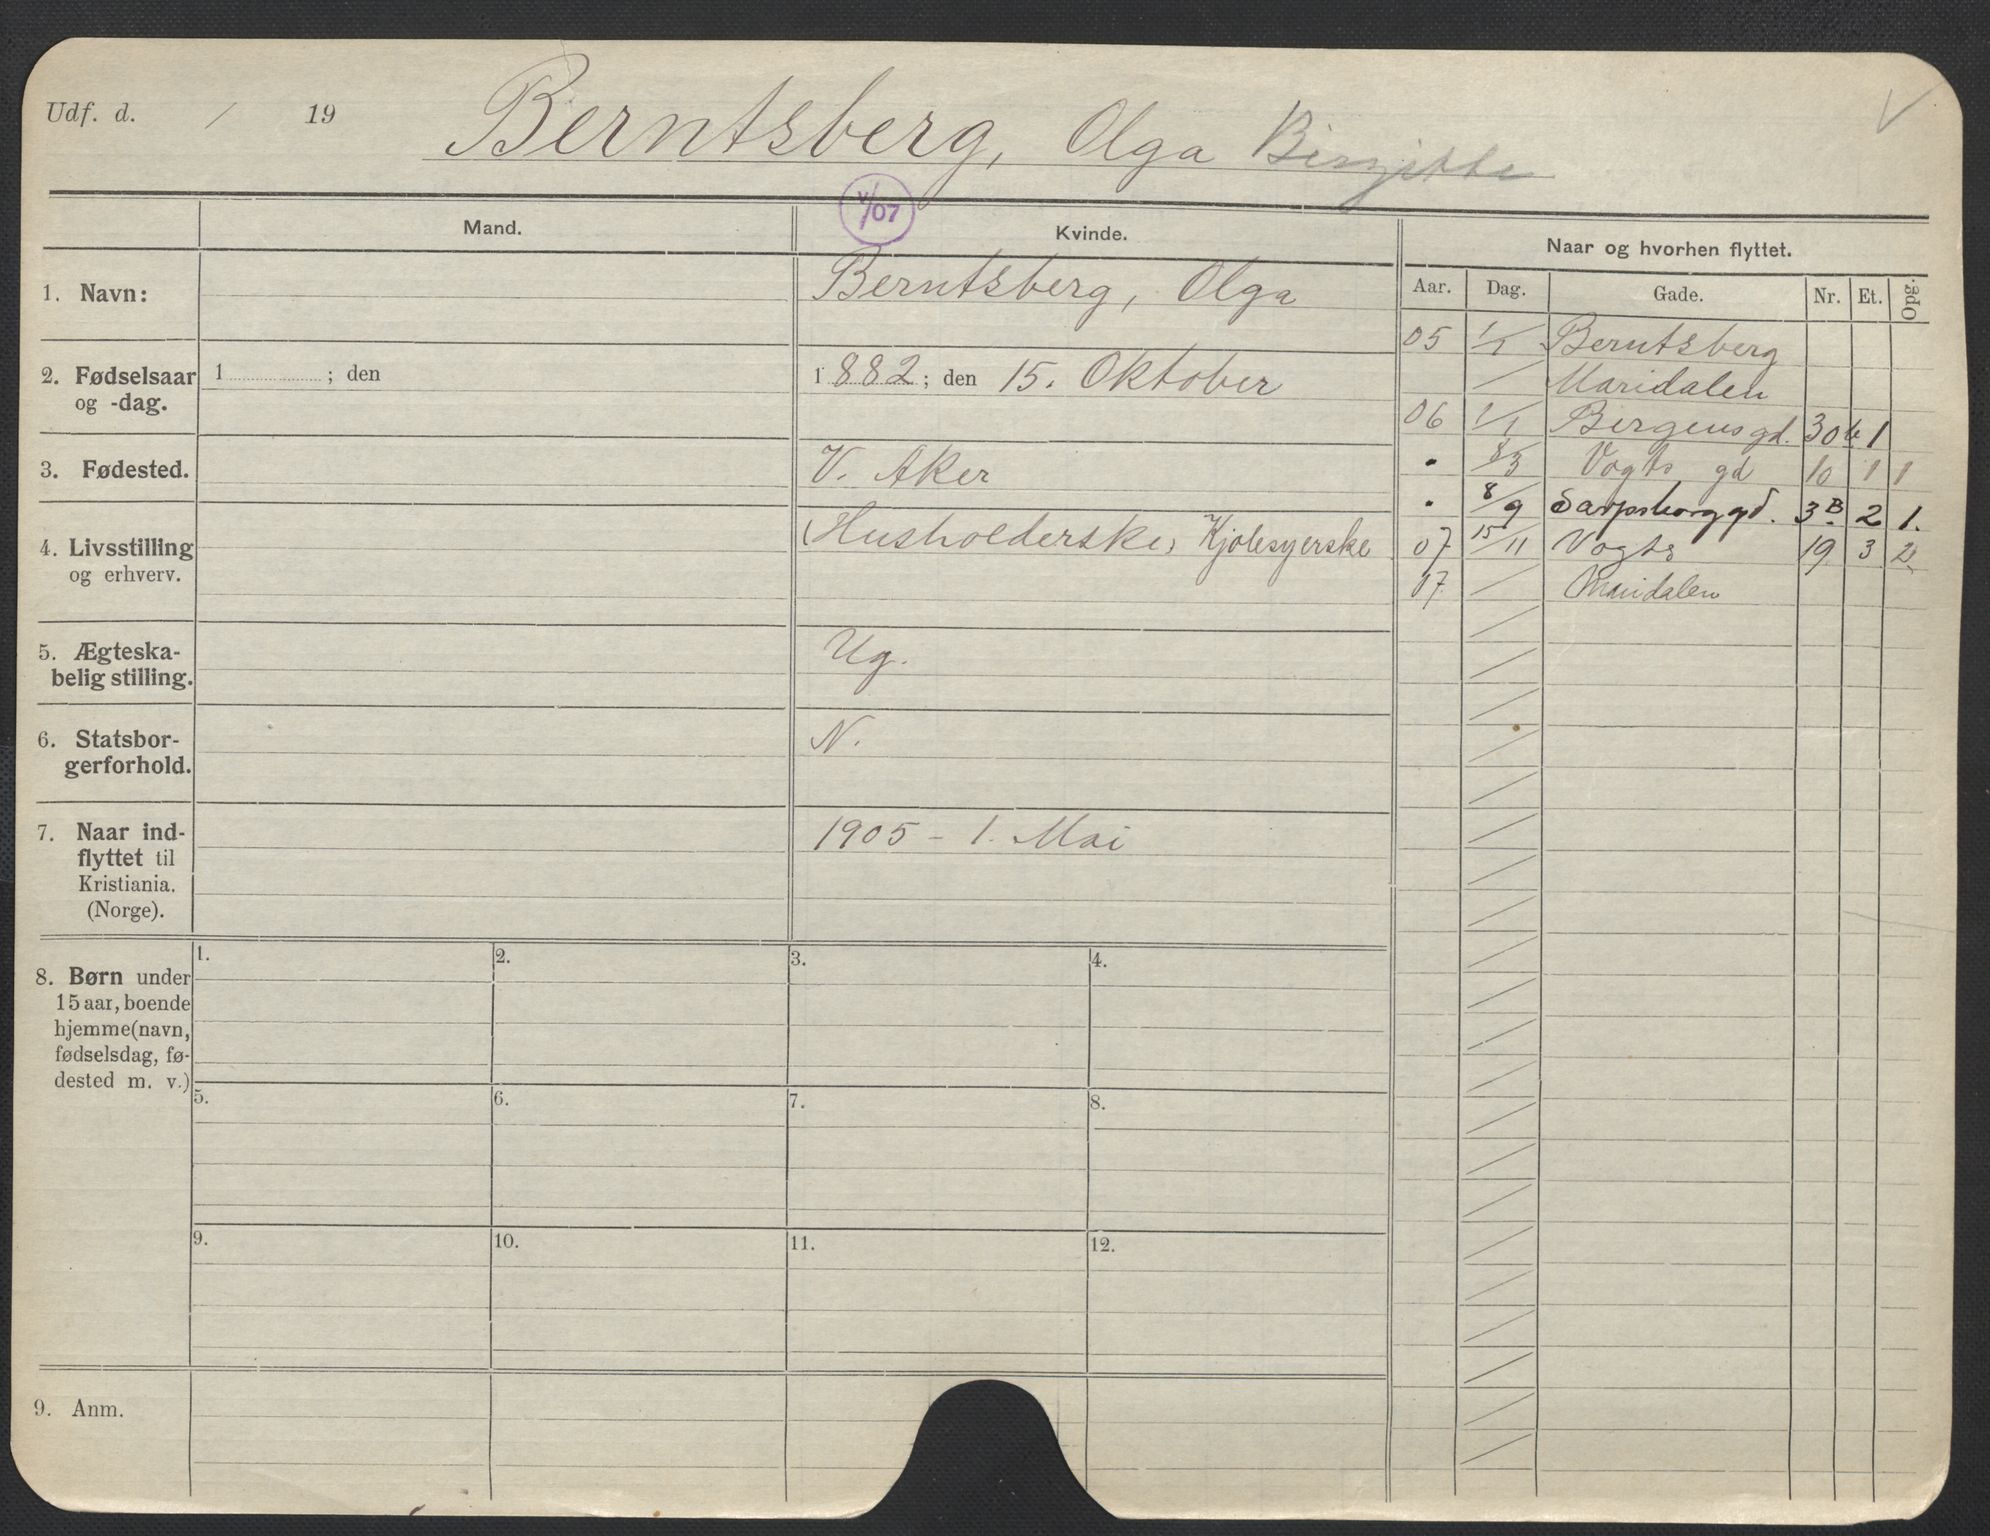 Udf. d. / 19
Berntsberg, Olga Birgitte
V
V/07
Mand.
Kvinde.
Naar og hvorhen flyttet.
Aar. Dag. Gade. Nr. Et. Opg.
1. Navn:
Berntsberg, Olga
2. Fødselsaar
og -dag.
1 ; den
1882; den 15. Oktober
3. Fødested.
V. Aker
4. Livsstilling
og erhverv.
(Husholderske) Kjolesyerske
5. Ægteska-
belig stilling.
Ug.
6. Statsbor-
gerforhold.
N.
7. Naar ind-
flyttet til
Kristiania.
(Norge).
1905 - 1. Mai
05 1/1 Berntsberg
Maridalen
06 1/1 Bergensgd. 30b 1
" 8/3 Vogts gd 10 1 1
" 8/9 Sarpsborggd. 3B. 2 1.
07 15/11 Vogts 19 3 2
07 Maridalen
8. Børn under
15 aar, boende
hjemme (navn,
fødselsdag, fø-
dested m. v.)
1. 2. 3. 4.
5. 6. 7. 8.
9. 10. 11. 12.
9. Anm.